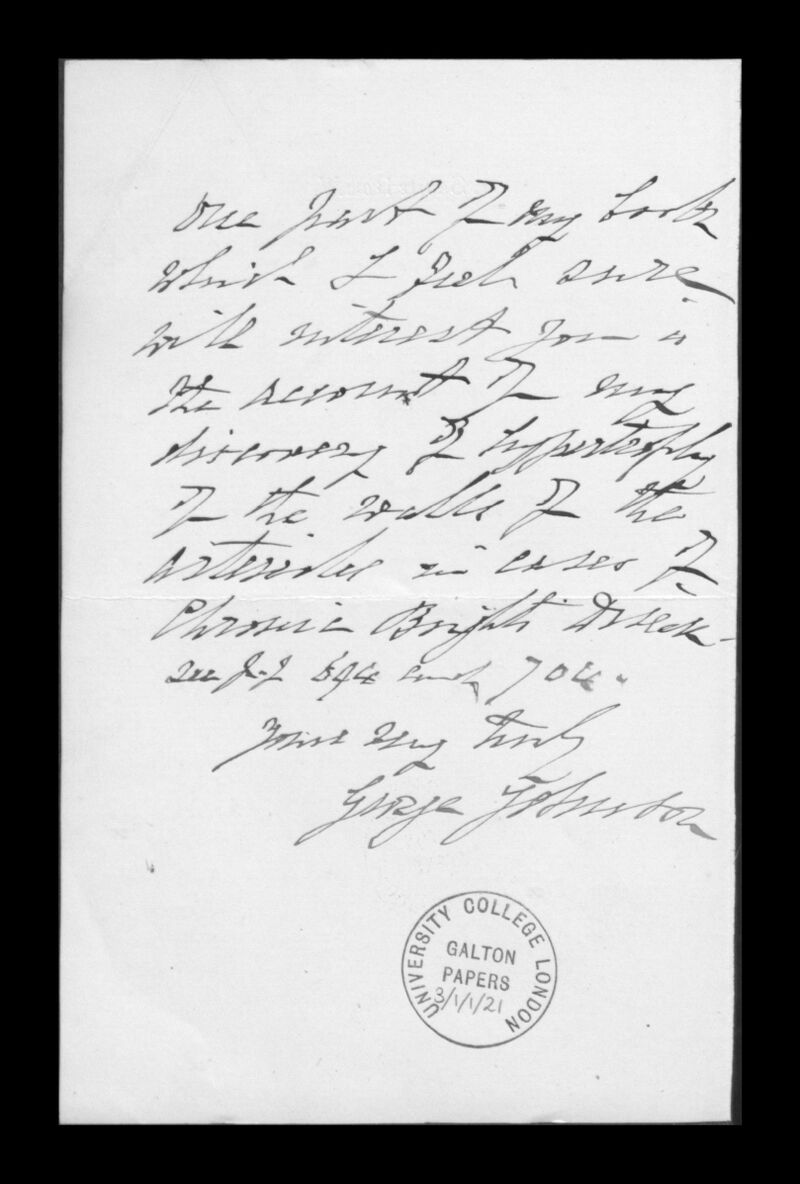 One part of my book
which I feel sure
will interest you is
the account of my
discovery of hypertrophy
of the walls of the
arterioles in cases of
Chronic Bright's Disease.
see p.p 694 and 704.
Yours very truly
George Johnson
UNIVERSITY COLLEGE LONDON
GALTON
PAPERS
3/1/1/21